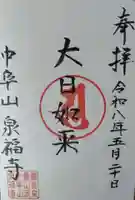 奉拝
令和八年五月二十日
大日如来
中阜山 泉福寺